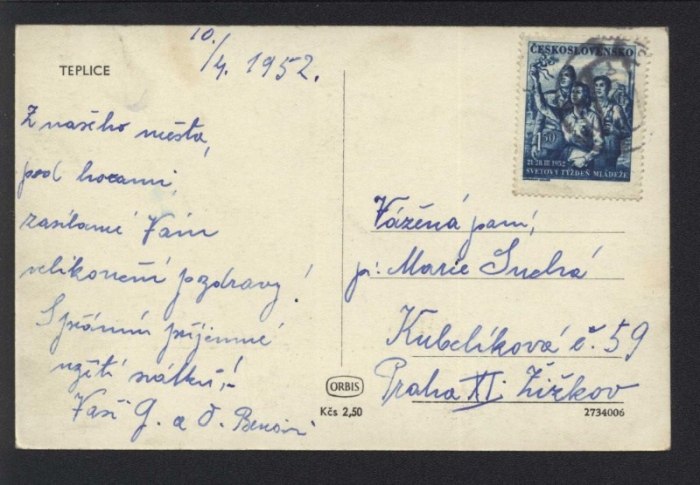 TEPLICE
10./4. 1952.
Z našeho města,
pod horami,
zasílamé Vám
velikonoční pozdravy!
S přáním příjemné
užití svátků!
Vaši G. a O.
ČESKOSLOVENSKO
1.50
21.-28.III.1952
SVETOVÝ TÝŽDEŇ MLÁDEŽE
Vážená paní,
pí: Marie Suchá
Kubelíková č. 59
Praha XI. Žižkov
ORBIS
Kčs 2,50
2734006